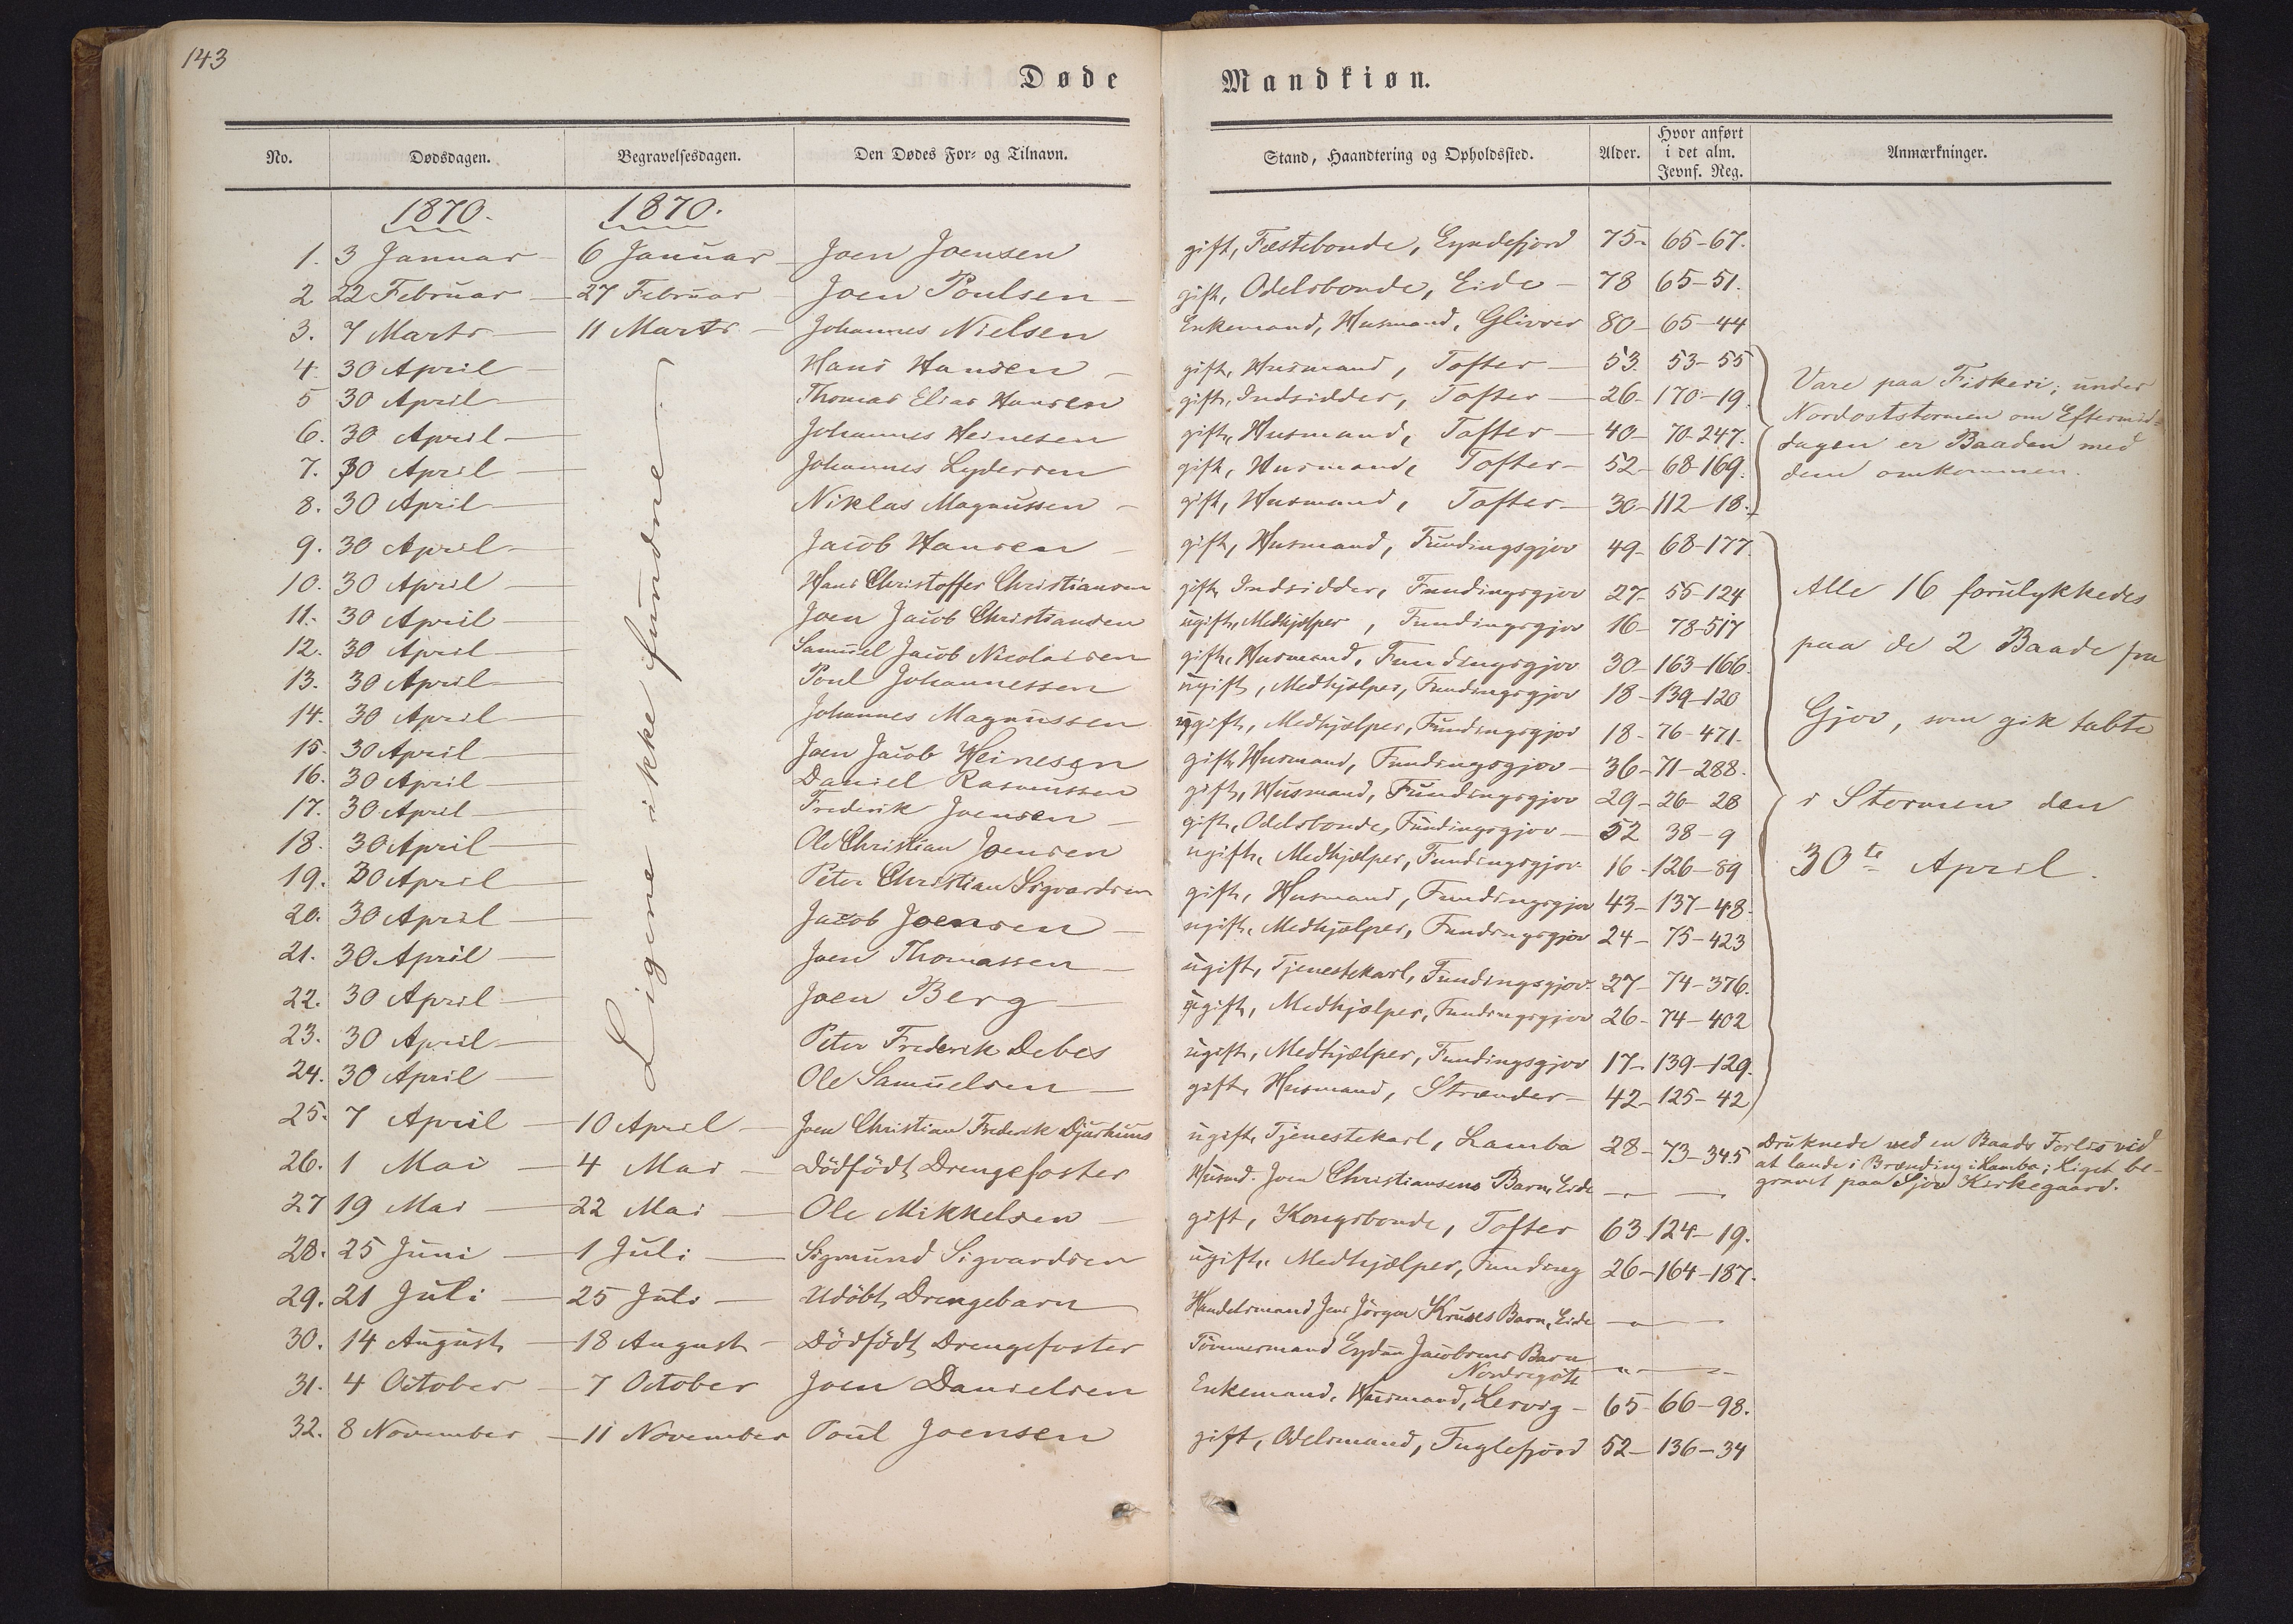 143
Døde Mandkiøn.
No. Dødsdagen. Begravelsesdagen. Den Dødes For- og Tilnavn. Stand, Haandtering og Opholdssted. Alder. Hvor anført i det alm. Jevnf. Reg. Anmærkninger.
1870. 1870.
1. 3 Januar 6 Januar Joen Joensen gift, Fæstebonde, Eyndefjord 75 65-67.
2 22 Februar 27 Februar Joen Poulsen gift, Odelsbonde, Eide 78 65-51.
3. 7 Marts 11 Marts Johannes Nielsen Enkemand, Husmand, Glivrer 80 65-44
4. 30 April Hans Hansen gift, Husmand, Tofter 53. 53-55
5 30 April Thomas Elias Hansen gift, Indsidder, Tofter 26 170-19.
6. 30 April Johannes Heinesen gift, Husmand, Tofter 40 70-247.
7. 30 April Johannes Lydersen gift, Husmand, Tofter 52 68-169.
8. 30 April Niklas Magnussen gift, Husmand, Tofter 30 112-18.
Vare paa Fiskeri; under
Nordoststormen om Eftermid-
dagen er Baaden med
dem omkommen.
9. 30 April Jacob Hansen gift, Husmand, Fundingsgjov 49 68-177
10. 30 April Hans Christoffer Christiansen gift, Indsidder, Fundingsgjov 27 55-124
11. 30 April Joen Jacob Christiansen ugift, Medhjelper, Fundingsgjov 16 78-517
12. 30 April Samuel Jacob Nicolaisen gift, Husmand, Fundingsgjov 30 163-166.
13. 30 April Poul Johannessen ugift, Medhjelper, Fundingsgjov 18 139-120
14. 30 April Johannes Magnussen ugift, Medhjælper, Fundingsgjov 18 76-471.
15. 30 April Joen Jacob Heinesen gift, Husmand, Fundingsgjov 36 71-288.
16. 30 April Daniel Rasmussen gift, Husmand, Fundingsgjov 29 26-28
17. 30 April Frederik Joensen gift, Odelsbonde, Fundingsgjov 52 38-9
18. 30 April Ole Christian Joensen ugift, Medhjælper, Fundingsgjov 16 126-89
19. 30 April Peter Christian Sigvardsen gift, Husmand, Fundingsgjov 43 137-48.
20. 30 April Jacob Joensen ugift, Medhjælper, Fundingsgjov 24 75-423
21. 30 April Joen Thomassen ugift, Tjenestekarl, Fundingsgjov 27 74-376.
22. 30 April Joen Berg ugift, Medhjælper, Fundingsgjov 26 74-402
23. 30 April Peter Frederik Debes ugift, Medhjælper, Fundingsgjov 17 139-129.
24. 30 April Ole Samuelsen gift, Husmand, Strænder 42 125-42
Ligene ikke fundne
Alle 16 forulykkedes
paa de 2 Baade fra
Gjov, som gik tabte
i Stormen den
30te April.
25. 7 April 10 April Joen Christian Frederik Djurhuus ugift, Tjenestekarl, Lamba 28 73-345 Druknede ved en Baads Forlis ved
at lande i Brænding i Lamba; Liget be-
gravet paa Gjov Kirkegaard.
26. 1 Mai 4 Mai Dödfödt Drengefoster Husmd. Joen Christiansens Barn, Eide
27 19 Mai 22 Mai Ole Mikkelsen gift, Kongsbonde, Tofter 63 124-19.
28. 25 Juni 1 Juli Sigmund Sigvardsen ugift, Medhjælper, Funding 26 164-187.
29. 21 Juli 25 Juli Udöbt Drengebarn Handelsmand Jens Jörgen Kruses Barn, Eide
30. 14 August 18 August Dödfödt Drengefoster Tömmermand Eydun Jacobsens Barn
Nordregöte
31. 4 October 7 October Joen Danielsen Enkemand, Husmand, Lervig 65 66-98.
32. 8 November 11 November Poul Joensen gift, Odelsmand, Fuglefjord 52 136-34